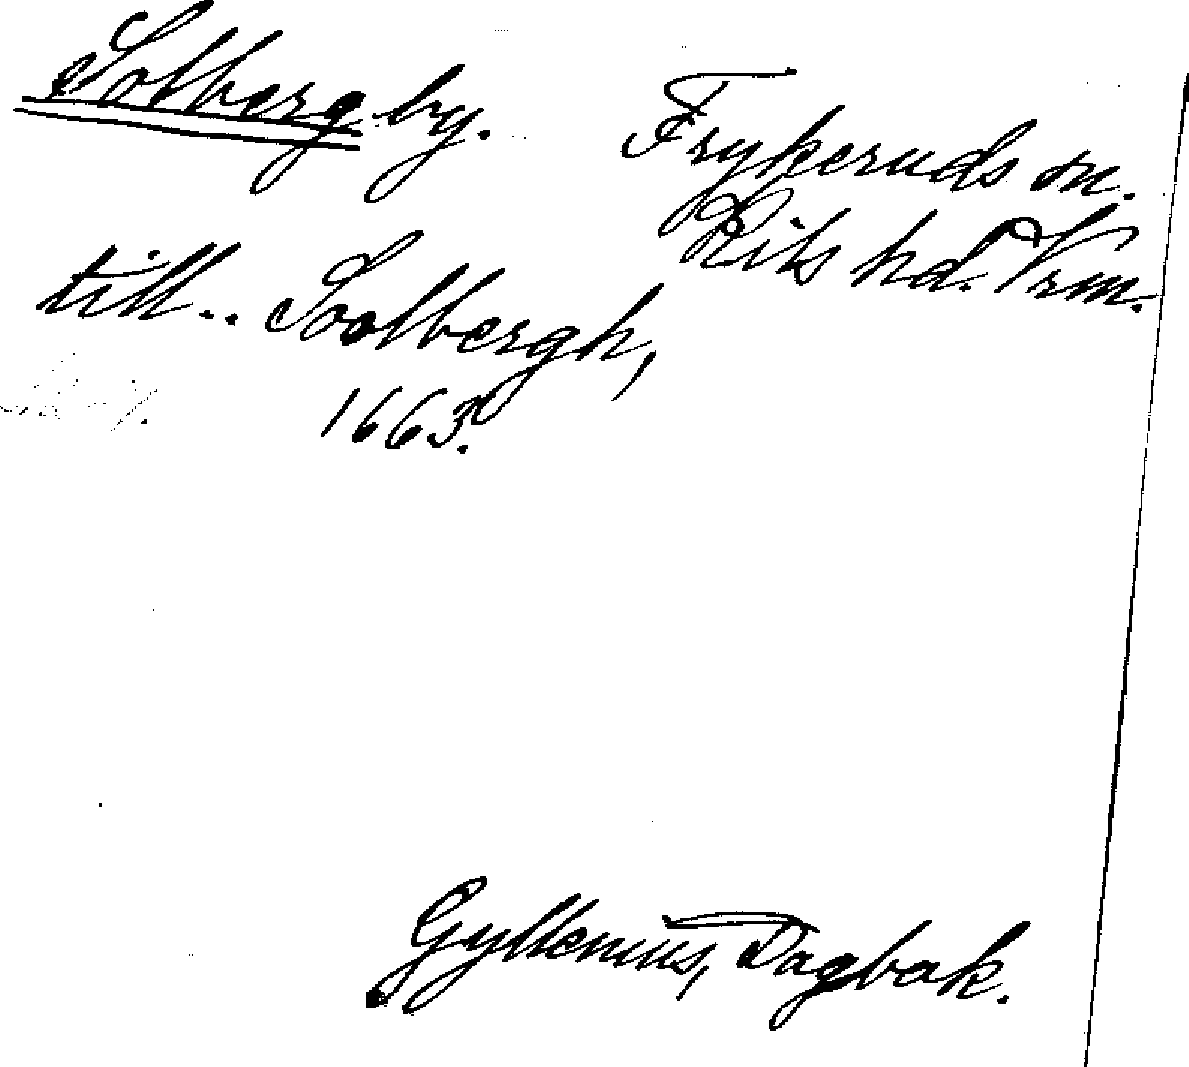 Solberg by. Frykeruds sn.
Kils hd. Vrm.
till .. Soolbergh,
1663.
Gyllenius, Dagbok.